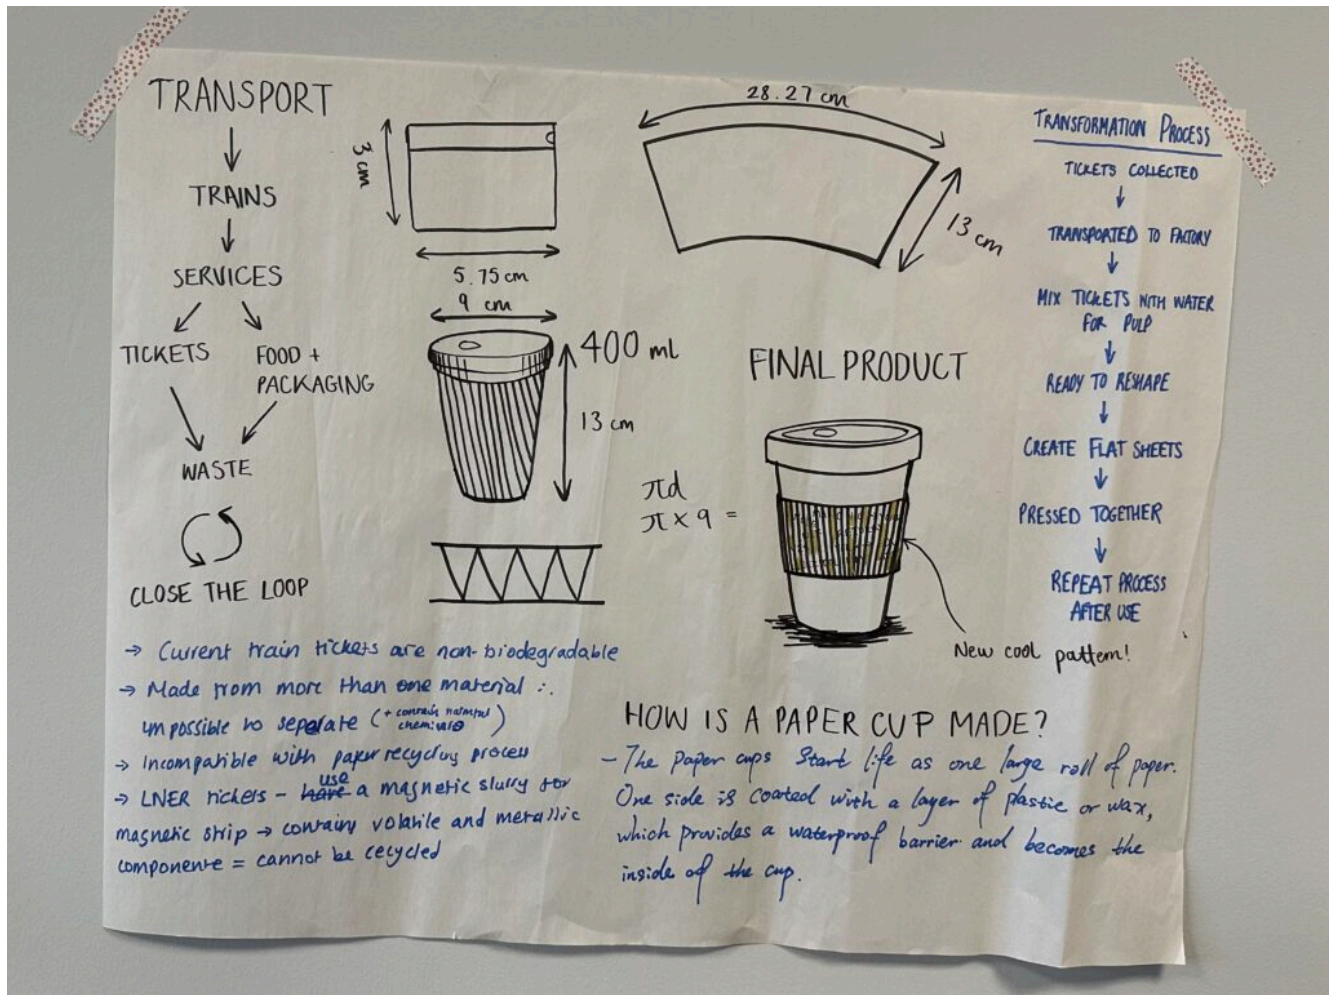 TRANSPORT
TRAINS
SERVICES
TICKETS
FOOD +
PACKAGING
WASTE
CLOSE THE LOOP
3 cm
5.75 cm
9 cm
400 ml
13 cm
28.27 cm
13 cm
πd
π x 9 =
FINAL PRODUCT
New cool pattern!
TRANSFORMATION PROCESS
TICKETS COLLECTED
TRANSPORTED TO FACTORY
MIX TICKETS WITH WATER
FOR PULP
READY TO RESHAPE
CREATE FLAT SHEETS
PRESSED TOGETHER
REPEAT PROCESS
AFTER USE
→ Current train tickets are non-biodegradable
→ Made from more than one material ∴
impossible to seperate (+ contain harmful
chemicals)
→ Incompatible with paper recycling process
→ LNER tickets - have use a magnetic slurry for
magnetic strip → contains volatile and metallic
components = cannot be recycled
HOW IS A PAPER CUP MADE?
- The paper cups start life as one large roll of paper.
One side is coated with a layer of plastic or wax,
which provides a waterproof barrier and becomes the
inside of the cup.